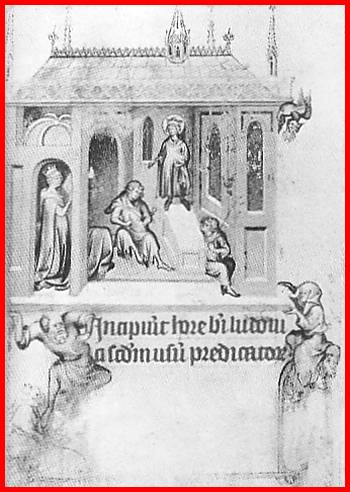 Incipiūt hore bi̅ ludoui
ci scd̅m usū predicatoꝝ